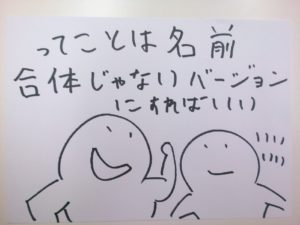 ってことは名前
合体じゃないバージョン
にすればいい